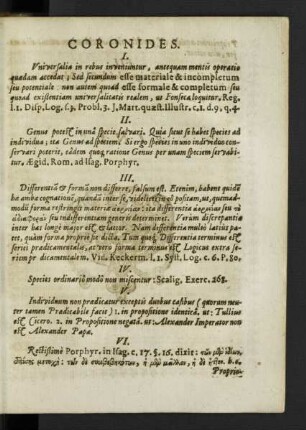 CORONIDES.
I.
Universalia in rebus inveniuntur, antequam mentis operatio
quædam accedat; Sed secundum esse materiale & incompletum
seu potentiale non autem quoad esse formale & completum seu
quoad existentiam universalitatis realem, ut Fonseca loquitur, Reg.
l.1. Disp. Log. s.3. Probl. 3. J. Mart. quæst. Illustr. c.1. d.9. q.4
II.
Genus potest in unâ specie salvari. Quia sicut se habet species ad
individua, ita Genus ad speciem: Si ergo species in uno individuo con-
servari poterit, eâdem quoq; ratione Genus per unam speciem serva bi-
tur, Ægid. Rom, ad Isag. Porphyr.
III.
Differentiā & formā non differre, falsum est. Etenim, habent quidē
hæ ambæ cognationē, quandā inter se,
modū forma restringit materia ita differentia
seu indifferentiam generis determinet. Verum discrepantia
inter has longè major est, Nam differentia multò latius pa-
tet, quàm forma propriè sic dicta. Tum quoq; Differentia terminus est
ferici prædicamentalis, at verò forma est terminus est Logicus extra se-
riem prædicamentalem. Vid. Keckerm. l.1. Syst. Log. c. 6. P. 80.
IV.
Species ordinario modô non miscentur: Scalig. Exerc. 268.
V.
Individuum non prædicatur exceptis duobus casibus (quorum neu-
ter tamen Prædicabile facit) 1. in propositione identicâ. ut: Tullius
est Cicero. 2. in Propositione negatâ. ut: Alexander Imperator non
est Alexander Papa.
VI.
Rectissimè Porphyr. in Isag. c. 17. §. 16. dixit:
Propria-